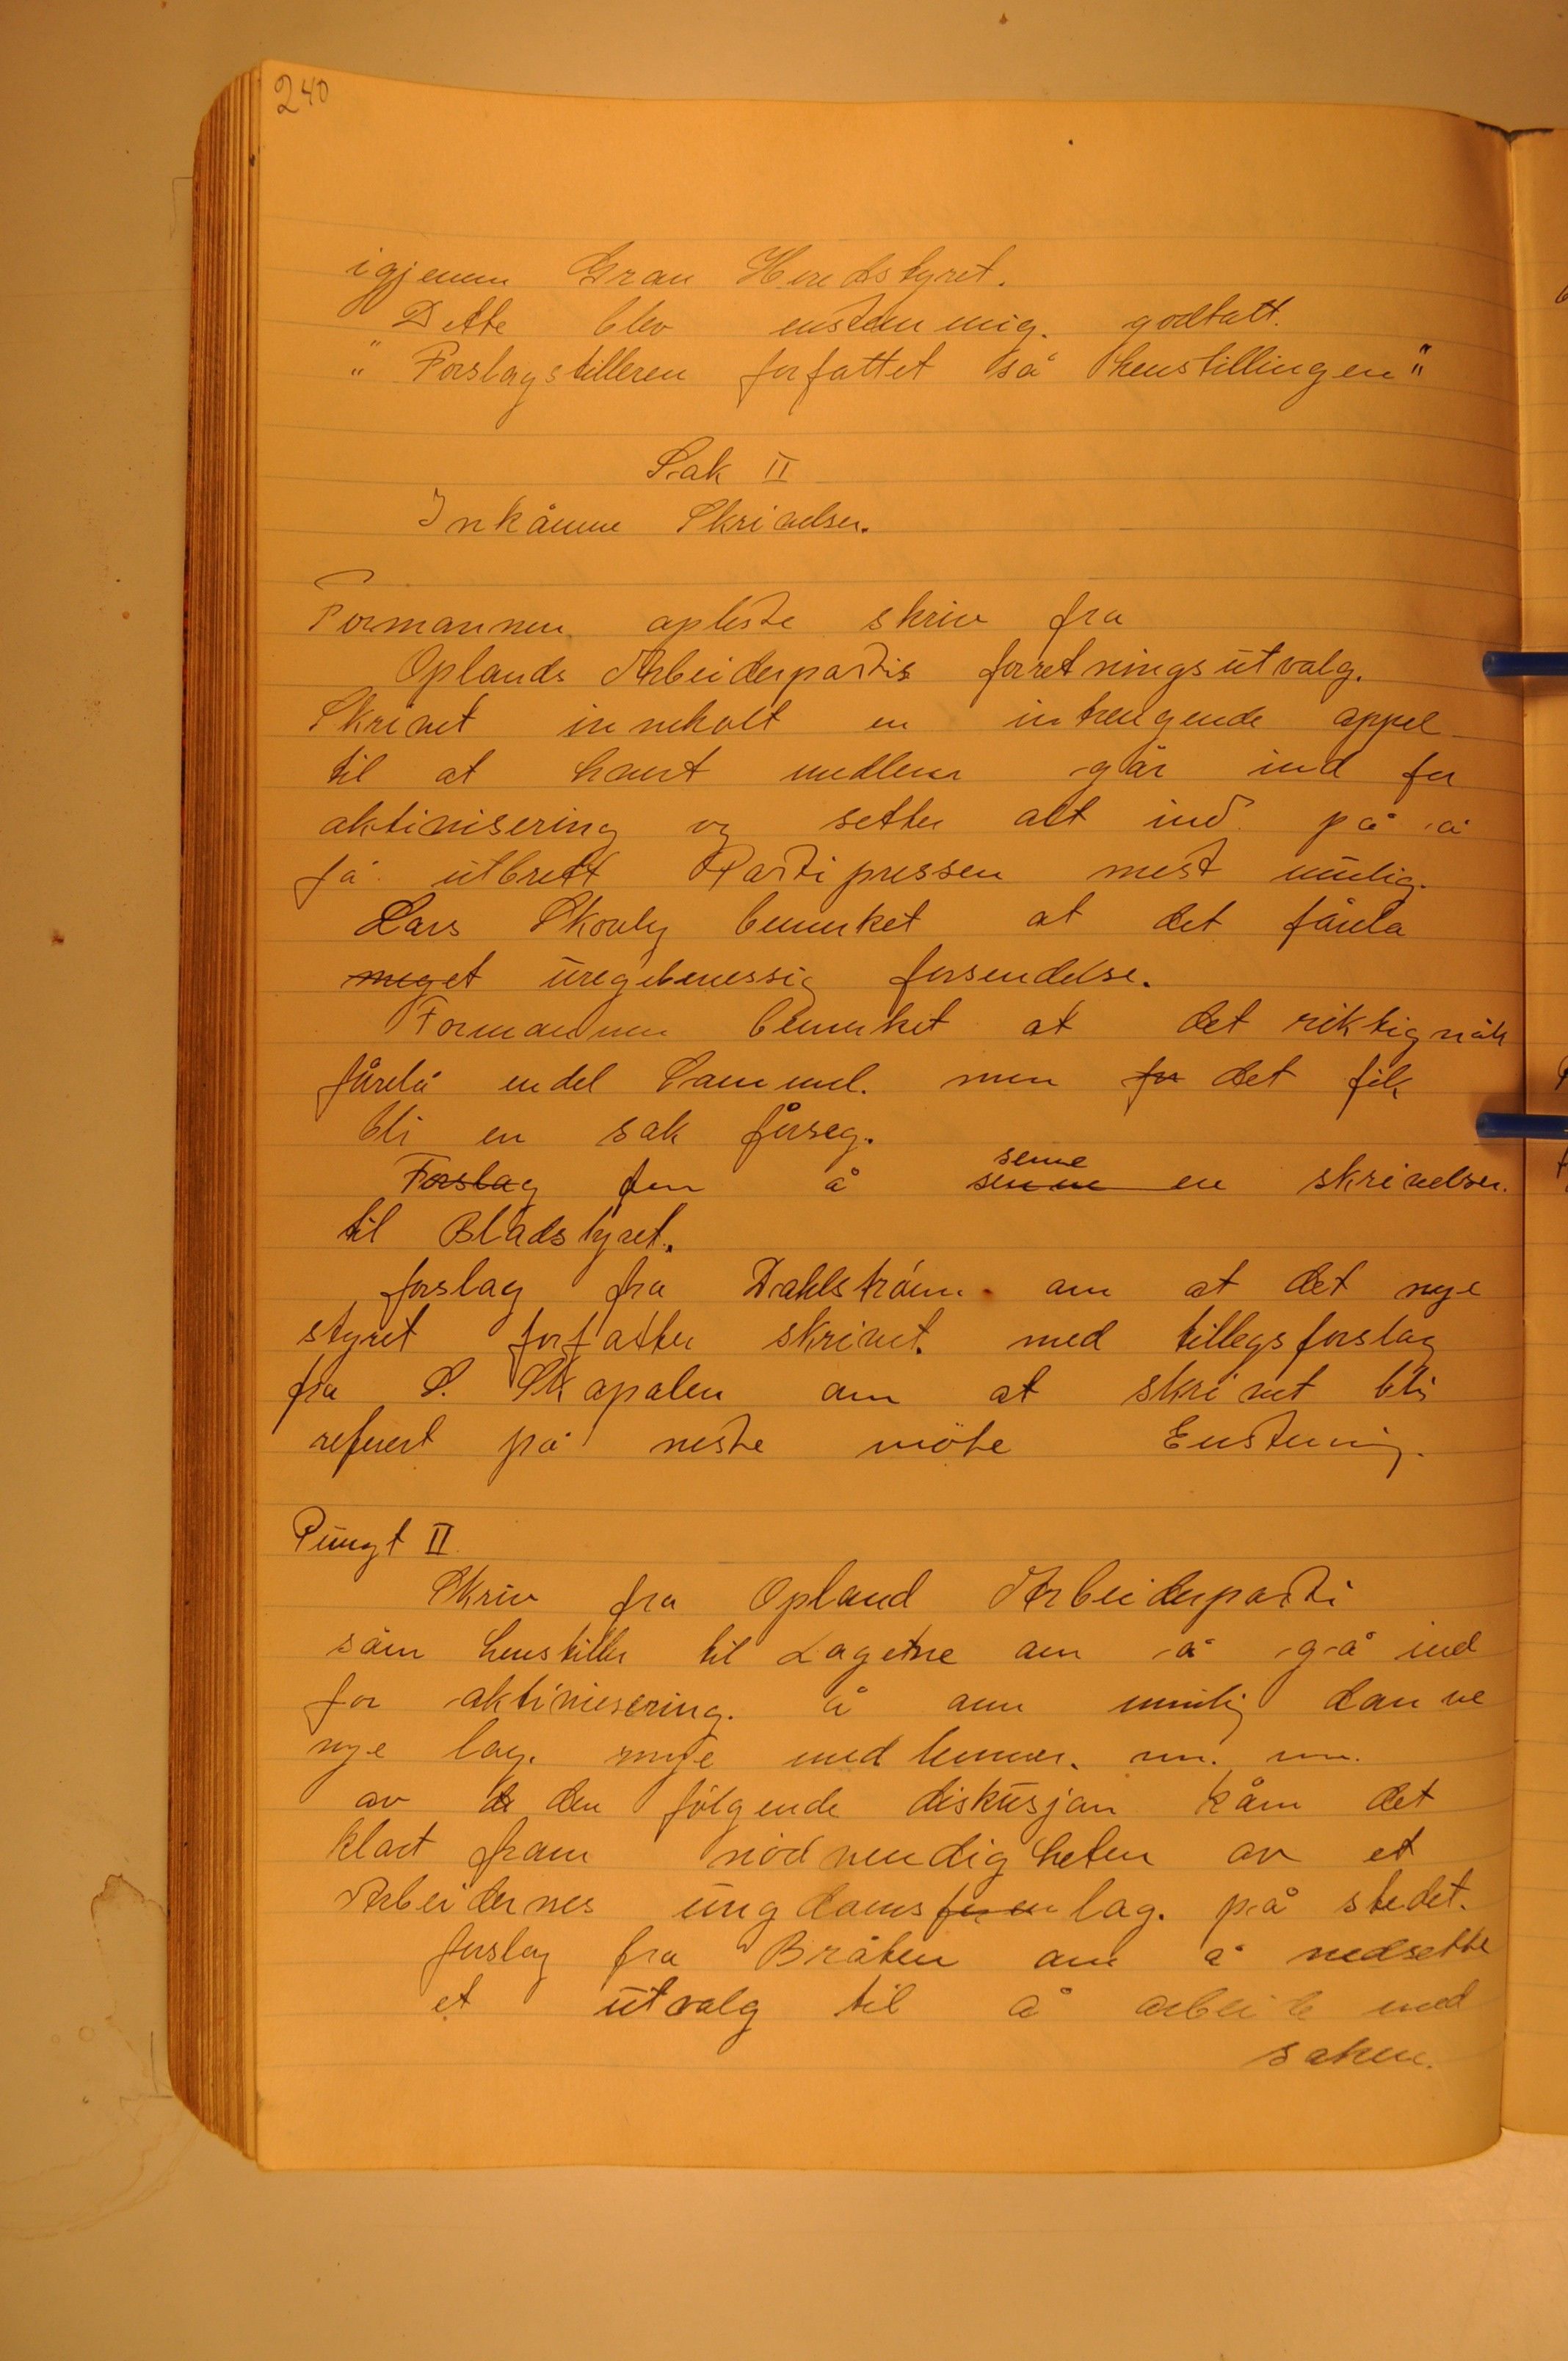 240
igjenem Gran Heredstyret.
Dette blev enstemmig. godtatt.
" Forslagstilleren forfattet så henstillingen"
Sak II
Inkåmne Skrivelser.
Formannen opleste skriv fra
Oplands Arbeiderpartis forretningsutvalg.
Skrivet inneholt en intrengende appel
til at hvert medlem går ind for
aktivisering og setter alt ind på å
få utbrett Partipressen mest mulig.
Lars Skovly bemerket at det fårela
meget uregelmessig forsendelse.
Formannen bemerket at det riktignåk
fårelå endel Sammel. men for det fik
bli en sak fårseg.
Forslag fem å senne
senne en skrivelser.
til Bladstyret.
forslag fra Dahlstrøm om at det nye
styret forfatter skrivet. med tillegsforslag
fra S. Skapalen om at skrivet bli
referert på neste møte Enstemig.
Pungt II
Skriv fra Opland Arbeiderparti
såm henstiller til Lagene om å gå ind
for aktiviesering. å om mulig danne
nye lag. mye medlemmer. m. m.
av de den følgende diskusjon kåm det
klart fram nødvendigheten av et
Arbeidernes ungdomsforenlag. på stedet.
forslag fra Bråten om å nedsette
et utvalg til å arbeide med
saken.